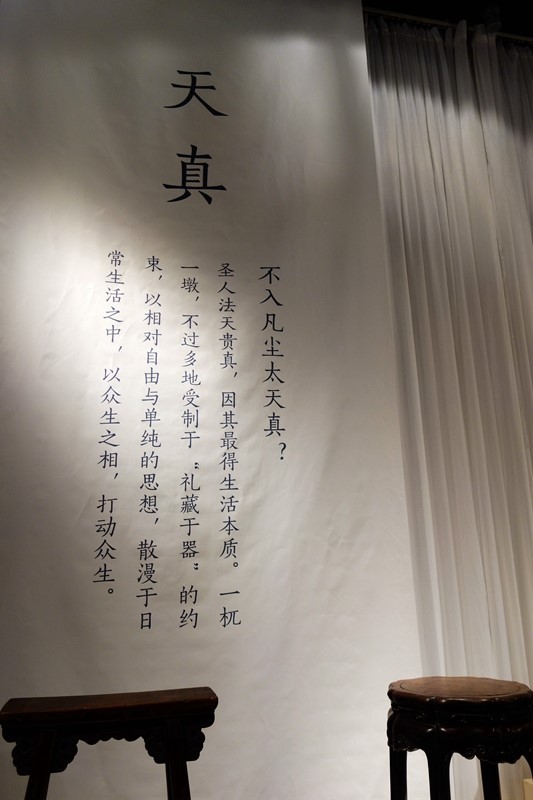 天真
不入凡尘太天真？
圣人法天贵真，因其最得生活本质。一杌
一墩，不过多地受制于“礼藏于器”的约
束，以相对自由与单纯的思想，散漫于日
常生活之中，以众生之相，打动众生。